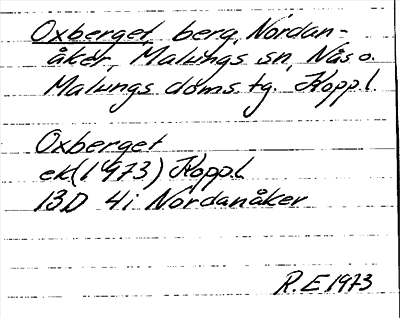 Oxberget, berg, Nordan-
åker, Malungs sn, Nås o.
Malungs doms.tg. Koppl.
Oxberget
ek(1973) Koppl.
13D 4i Nordanåker
R.E 1973